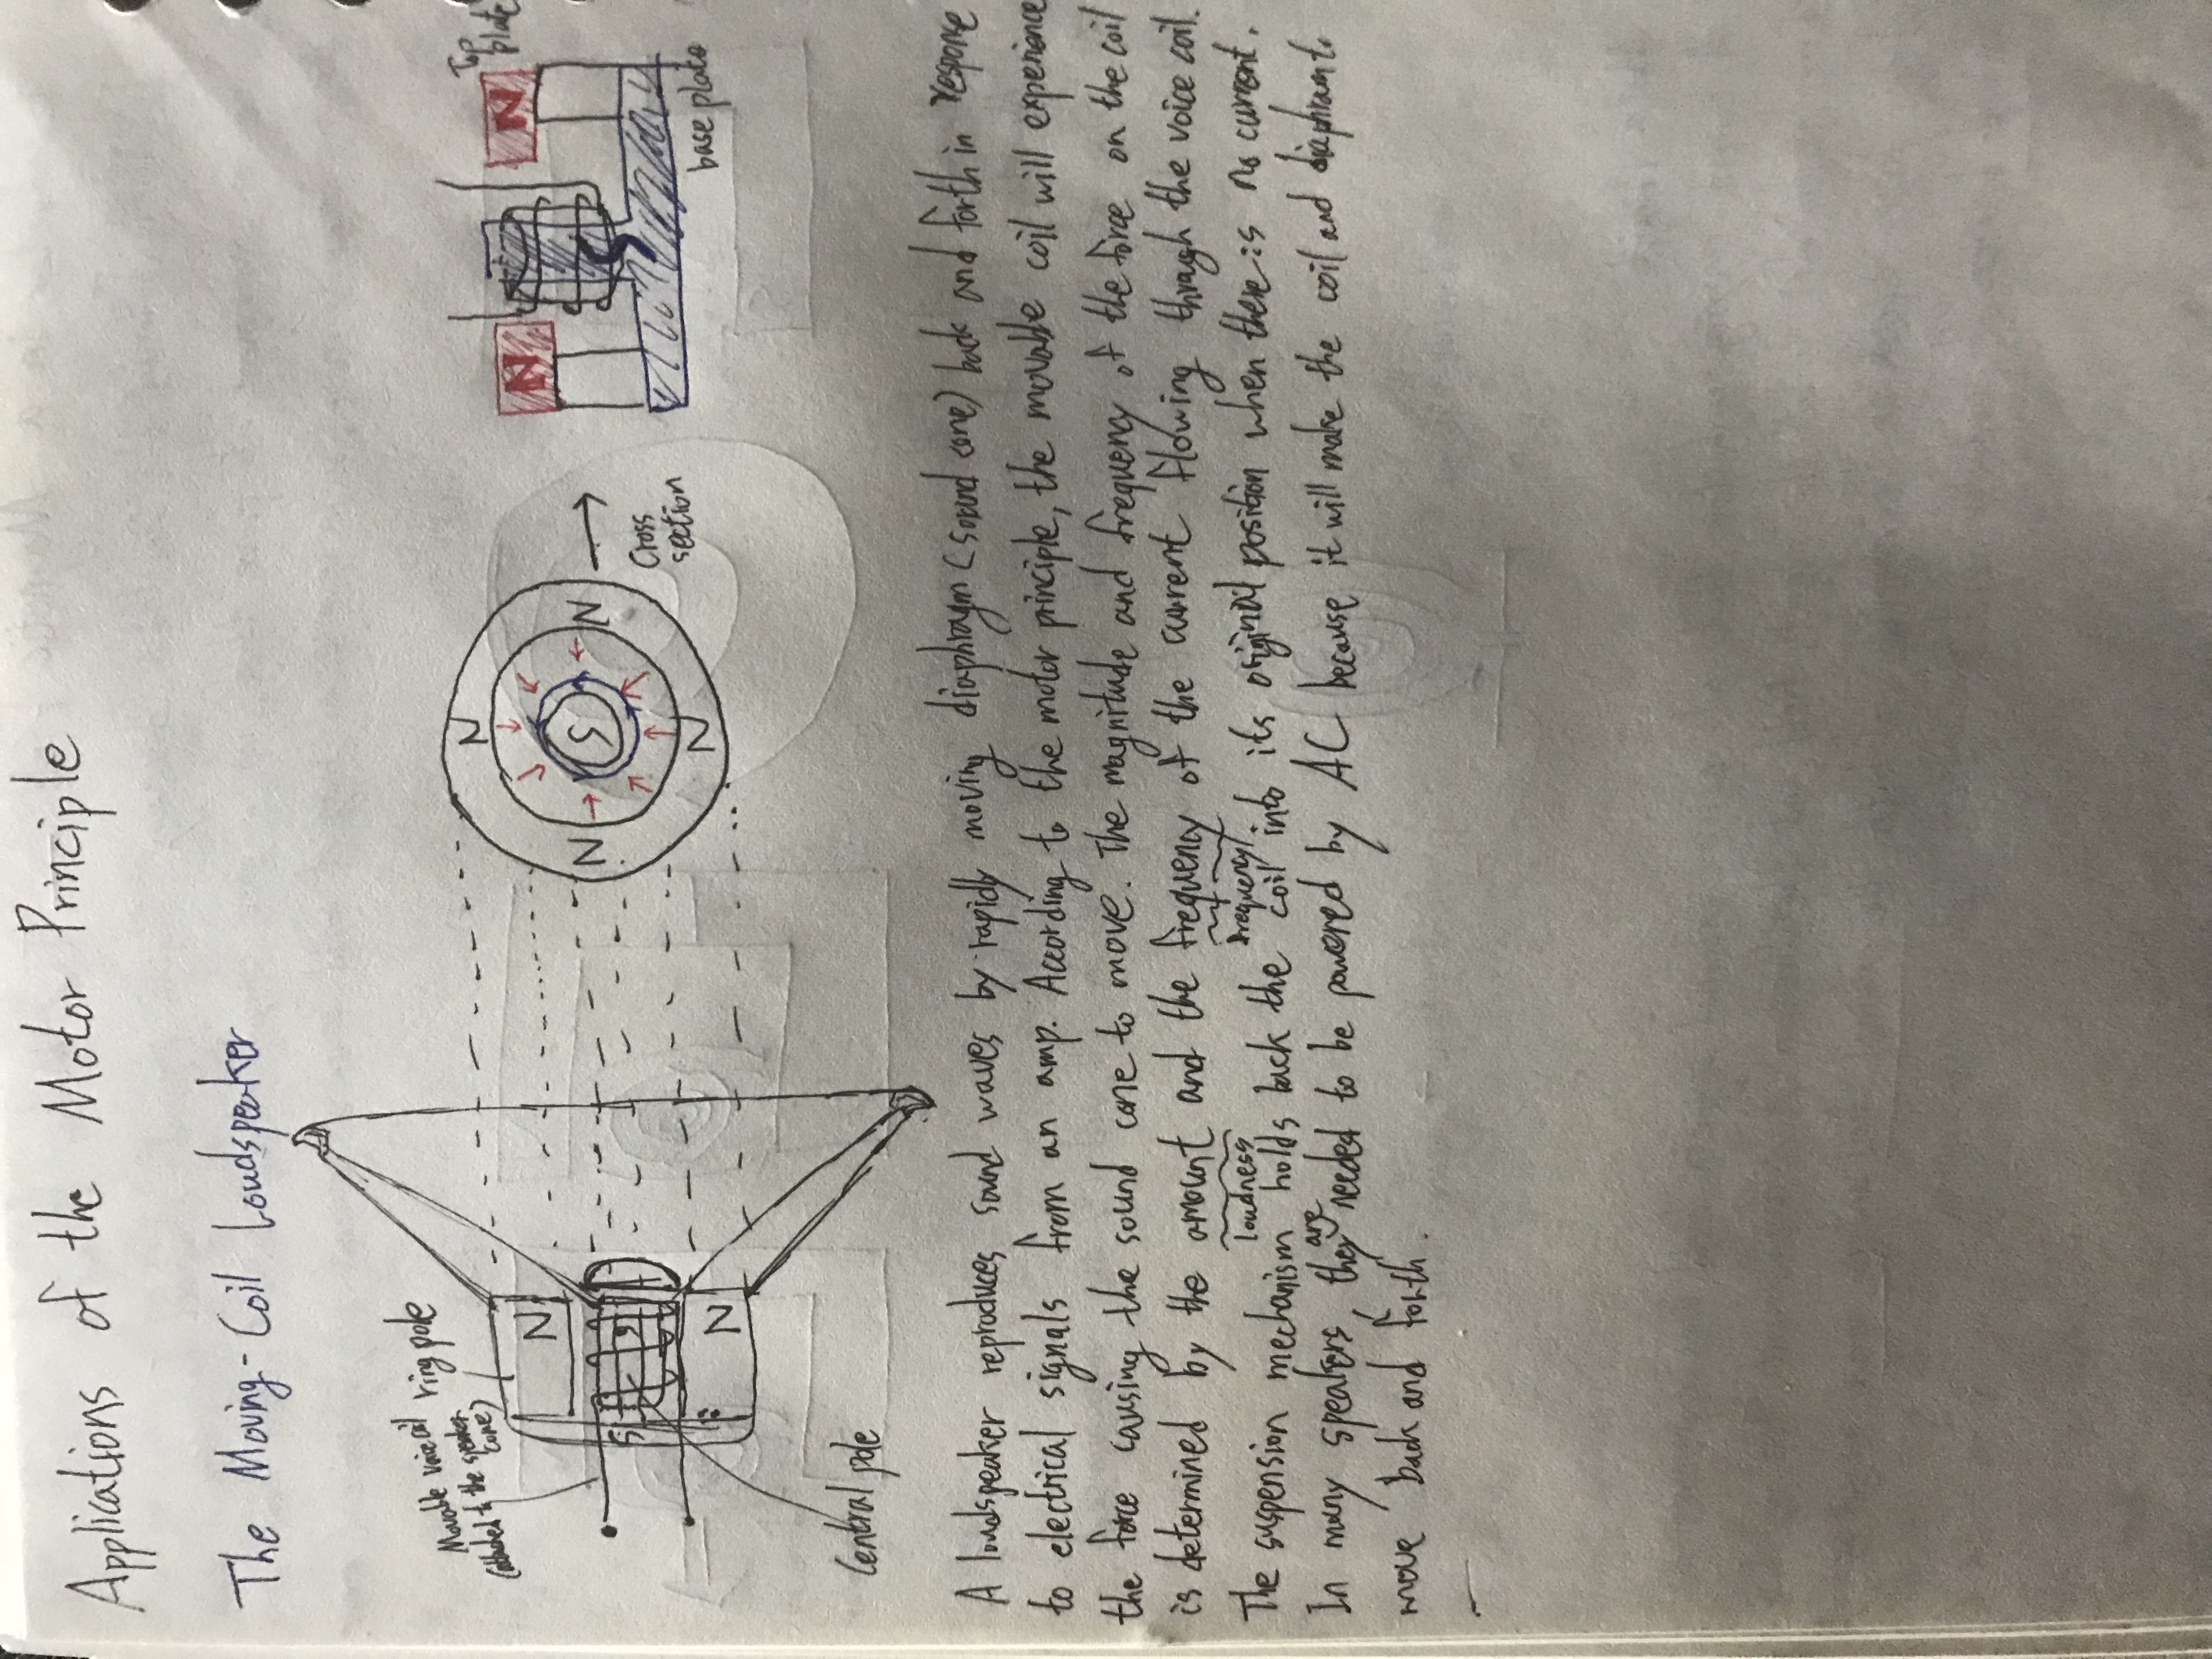 Applications of the Motor Principle
The Moving-Coil Loudspeaker
Movable voice coil
(attached to the speaker
cone)
ring pole
N
S
N
Central pole
N
N
S
N
N
Cross
section
N
N
Top
plate
base plate
A loudspeaker reproduces sound waves by rapidly moving diaphragm (sound cone) back and forth in response
to electrical signals from an amp. According to the motor principle, the movable coil will experience
the force causing the sound cone to move. The magnitude and frequency of the force on the coil
is determined by the amount and the frequency of the current flowing through the voice coil.
loudness frequency
The suspension mechanism holds back the coil into its original position when there is no current.
In many speakers they are needed to be powered by AC because it will make the coil and diaphram
move back and forth.